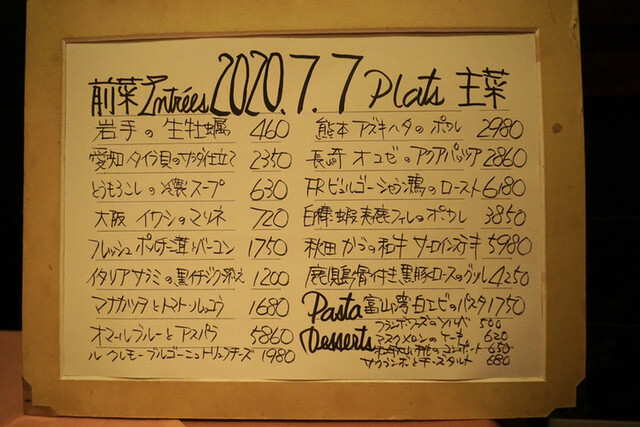 前菜 Entrées 2020.7.7 Plats 主菜
岩手の生牡蠣 460
愛知タイラ貝のサラダ仕立て 2350
とうもろこしの冷製スープ 630
大阪イワシのマリネ 720
フレッシュポルチーニ茸とベーコン 1750
イタリアサラミの黒イチジク添え 1200
マナガツヲとトマト 1680
オマールブルーとアスパラ 5860
ブルゴーニュ 1980
熊本アズキハタのポワレ 2980
長崎オコゼのアクアパッツァ 2860
FRビュルゴーシャラン鴨のロースト 6180
白 蝦夷鹿フィレのポワレ 3850
秋田かづの和牛サーロインステーキ 5980
鹿児島骨付き黒豚ロースのグリル 4250
Pasta 富山湾白エビのパスタ 1750
Desserts フランボワーズのソルベ 500
マスクメロンのケーキ 620
桃のコンポート 650
サクランボとチーズタルト 680